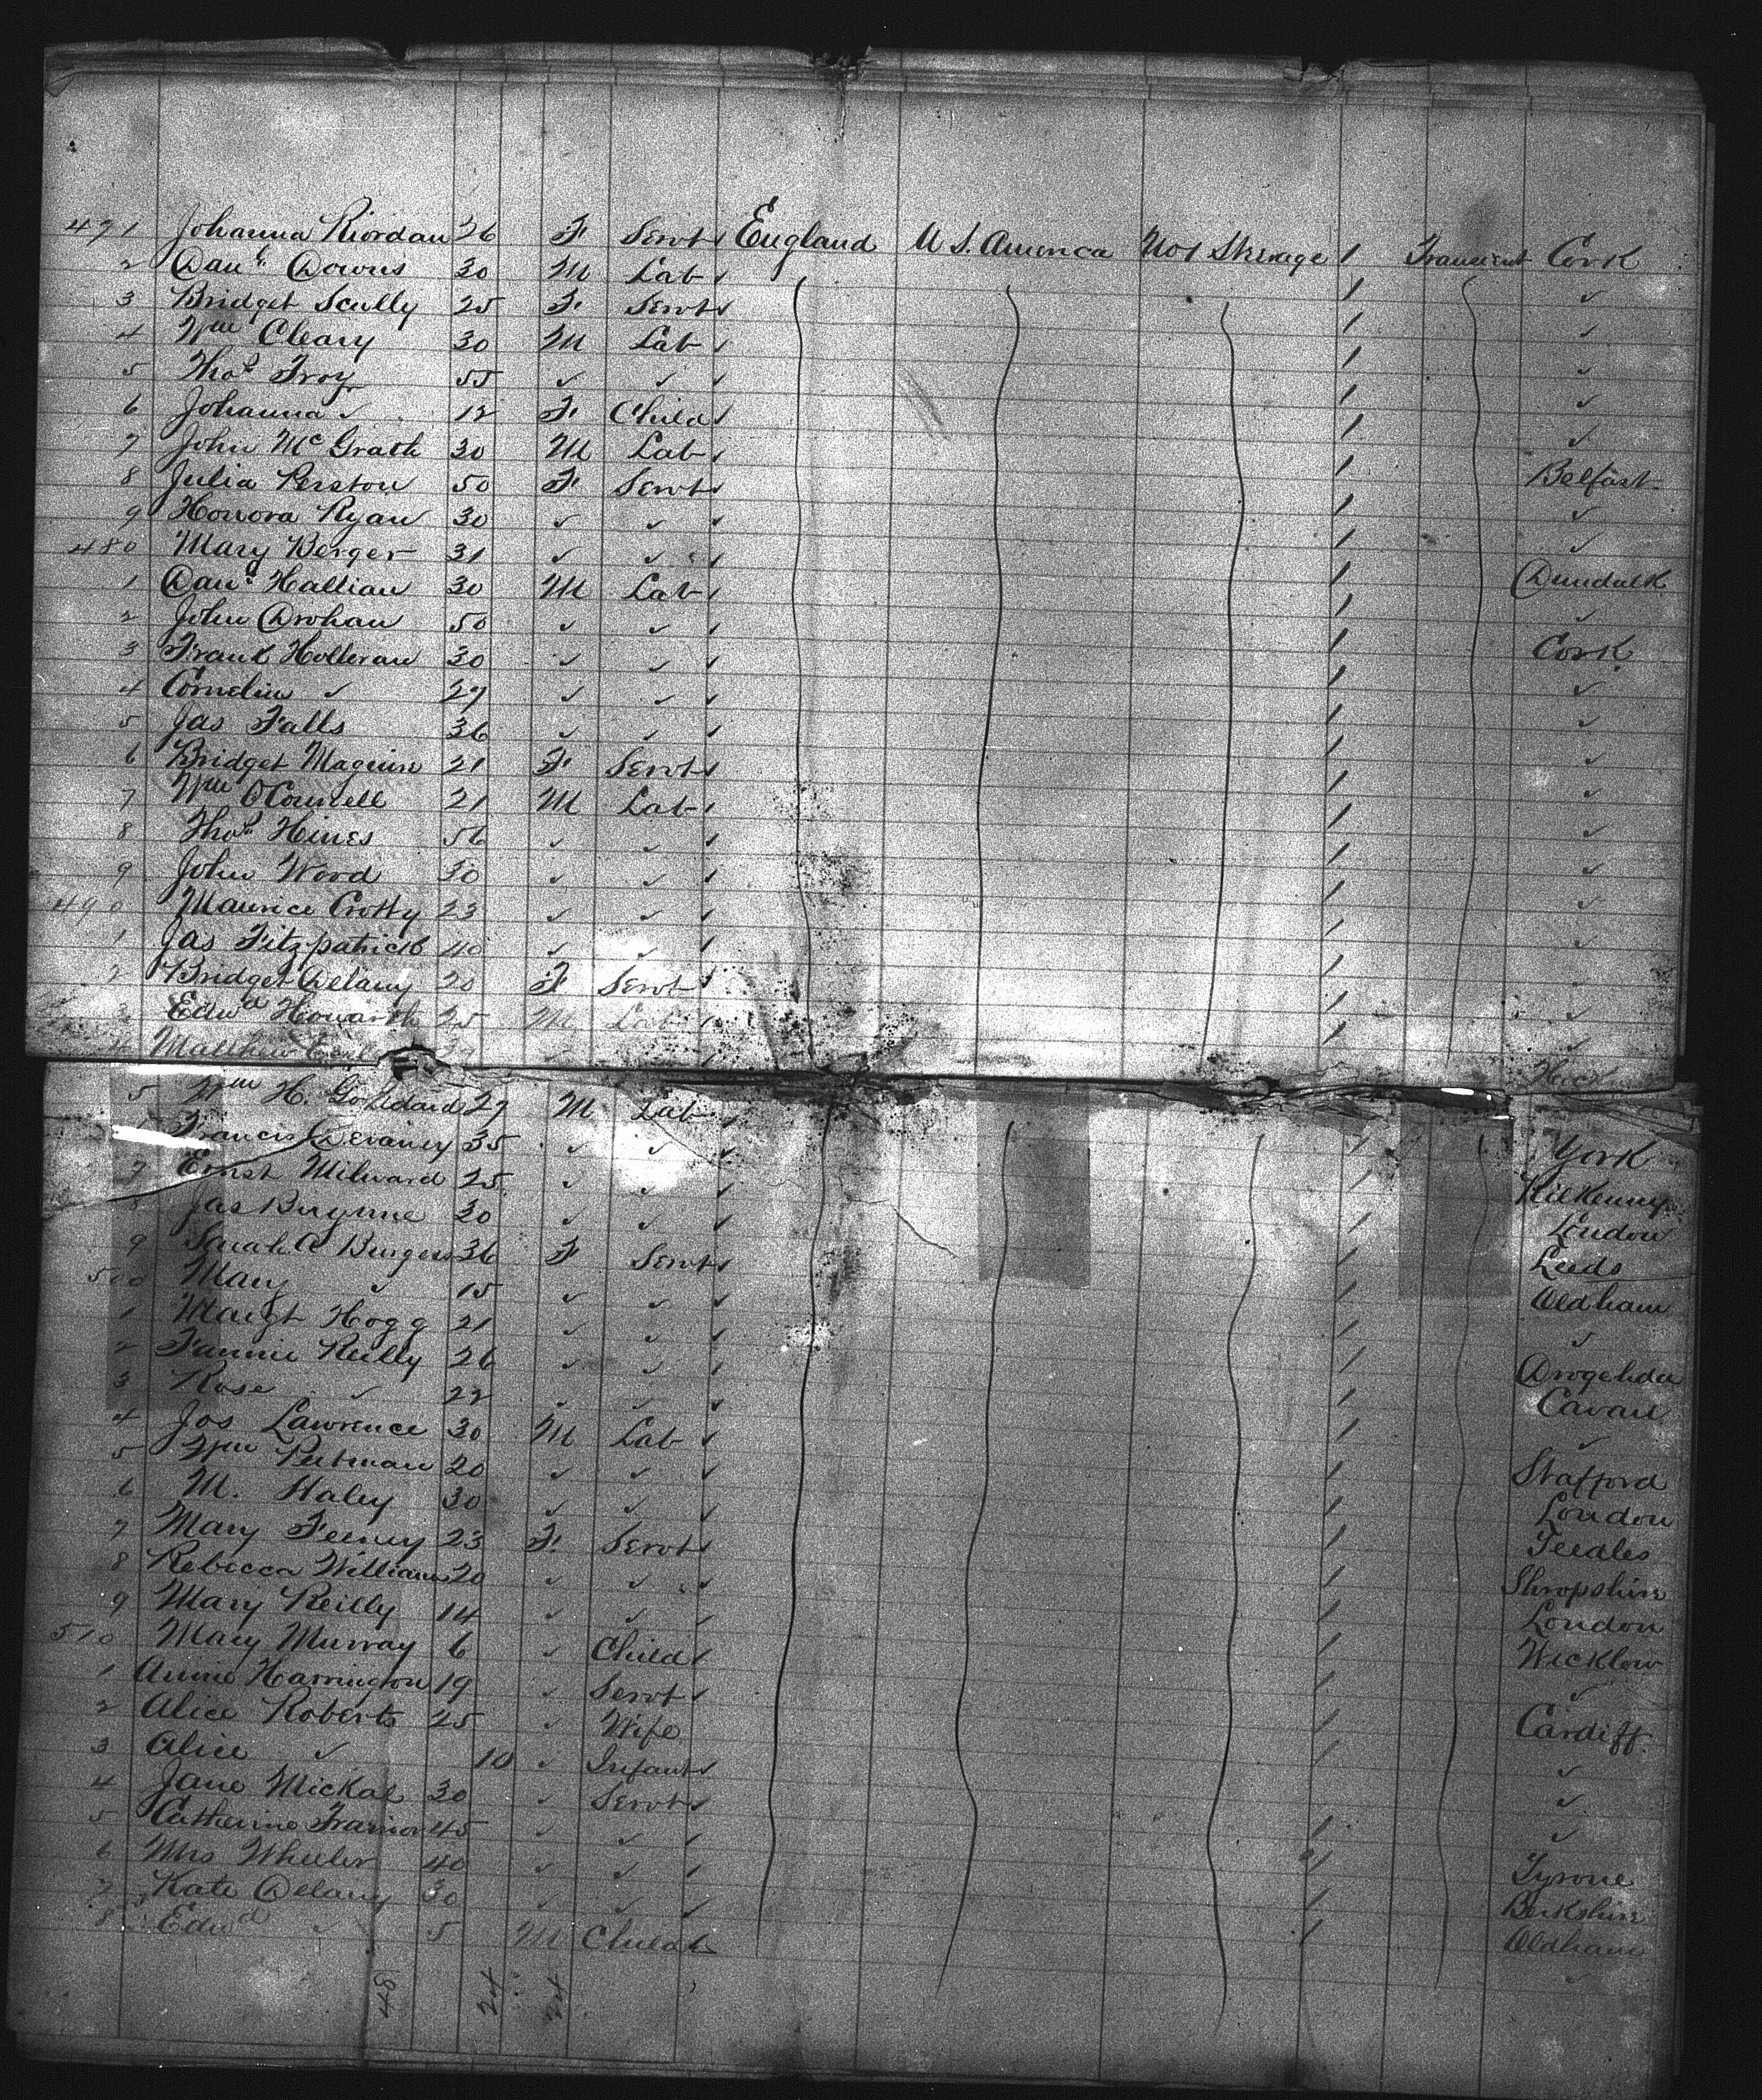 471 Johanna Riordan 26 F Servt ✓ England U.S. America No 1 Steerage / Transient Cork
2 Danl. Downs 30 M Lab ✓ / ✓
3 Bridget Scully 25 F Servt ✓ / ✓
4 Wm Cleary 30 M Lab ✓ / ✓
5 Thos. Troy 55 ✓ ✓ ✓ / ✓
6 Johanna ✓ 12 F Child ✓ / ✓
7 John McGrath 30 M Lab ✓ / Belfast
8 Julia Perston 50 F Servt ✓ / ✓
9 Honora Ryan 30 ✓ ✓ ✓ / ✓
480 Mary Berger 31 ✓ ✓ ✓ / Dundalk
1 Danl. Hallian 30 M Lab ✓ / ✓
2 John Drohan 50 ✓ ✓ ✓ / Cork
3 Frank Holleran 30 ✓ ✓ ✓ / ✓
4 Cornelius ✓ 27 ✓ ✓ ✓ / ✓
5 Jas Falls 36 ✓ ✓ ✓ / ✓
6 Bridget 21 F Servt ✓ / ✓
7 Wm O'Connell 21 M Lab ✓ / ✓
8 Thos. Hines 56 ✓ ✓ ✓ / ✓
9 John Word 30 ✓ ✓ ✓ / ✓
490 Maurice Crotty 23 ✓ ✓ ✓ / ✓
1 Jas Fitzpatrick 40 ✓ ✓ ✓ / ✓
2 Bridget Delany 20 F Servt ✓ / ✓
3 Edwd Howarth 25 M Lab ✓ / ✓
Matthew
5 Wm H. 27 M Lab ✓
Francis Devaney 35 ✓ ✓ ✓ / York
7 Ernst Milward 25 ✓ ✓ ✓ / Kilkenny
8 Jas 30 ✓ ✓ ✓ / London
9 Sarah A Burgess 36 F Servt ✓ / Leeds
500 Mary ✓ 15 ✓ ✓ ✓ / Oldham
1 Margt Hogg 21 ✓ ✓ ✓ / ✓
2 Fannie Reilly 26 ✓ ✓ ✓ / Drogehda
3 Rose ✓ 22 ✓ ✓ ✓ / Cavan
4 Jos Lawrence 30 M Lab ✓ / ✓
5 Wm 20 ✓ ✓ ✓ / Stafford
6 M. Haley 30 ✓ ✓ ✓ / London
7 Mary Feeney 23 F Servt ✓ /
8 Rebecca Williams 20 ✓ ✓ ✓ / Shropshire
9 Mary Reilly 14 ✓ ✓ ✓ / London
510 Mary Murray 6 ✓ Child ✓ / Wicklow
1 Annie Harrington 19 ✓ Servt ✓ / ✓
2 Alice Roberts 25 ✓ Wife / Cardiff
3 Alice ✓ 10 ✓ Infant ✓ / ✓
4 Jane Mickal 30 ✓ Servt ✓ ✓
5 Catherine 45 ✓ ✓ ✓ / ✓
6 Mrs Wheeler 40 ✓ ✓ ✓ / Tyrone
7 Kate Delany 30 ✓ ✓ ✓ / Berkshire
8 Edwd ✓ 5 M Child ✓ / Oldham
✓
48 24 24